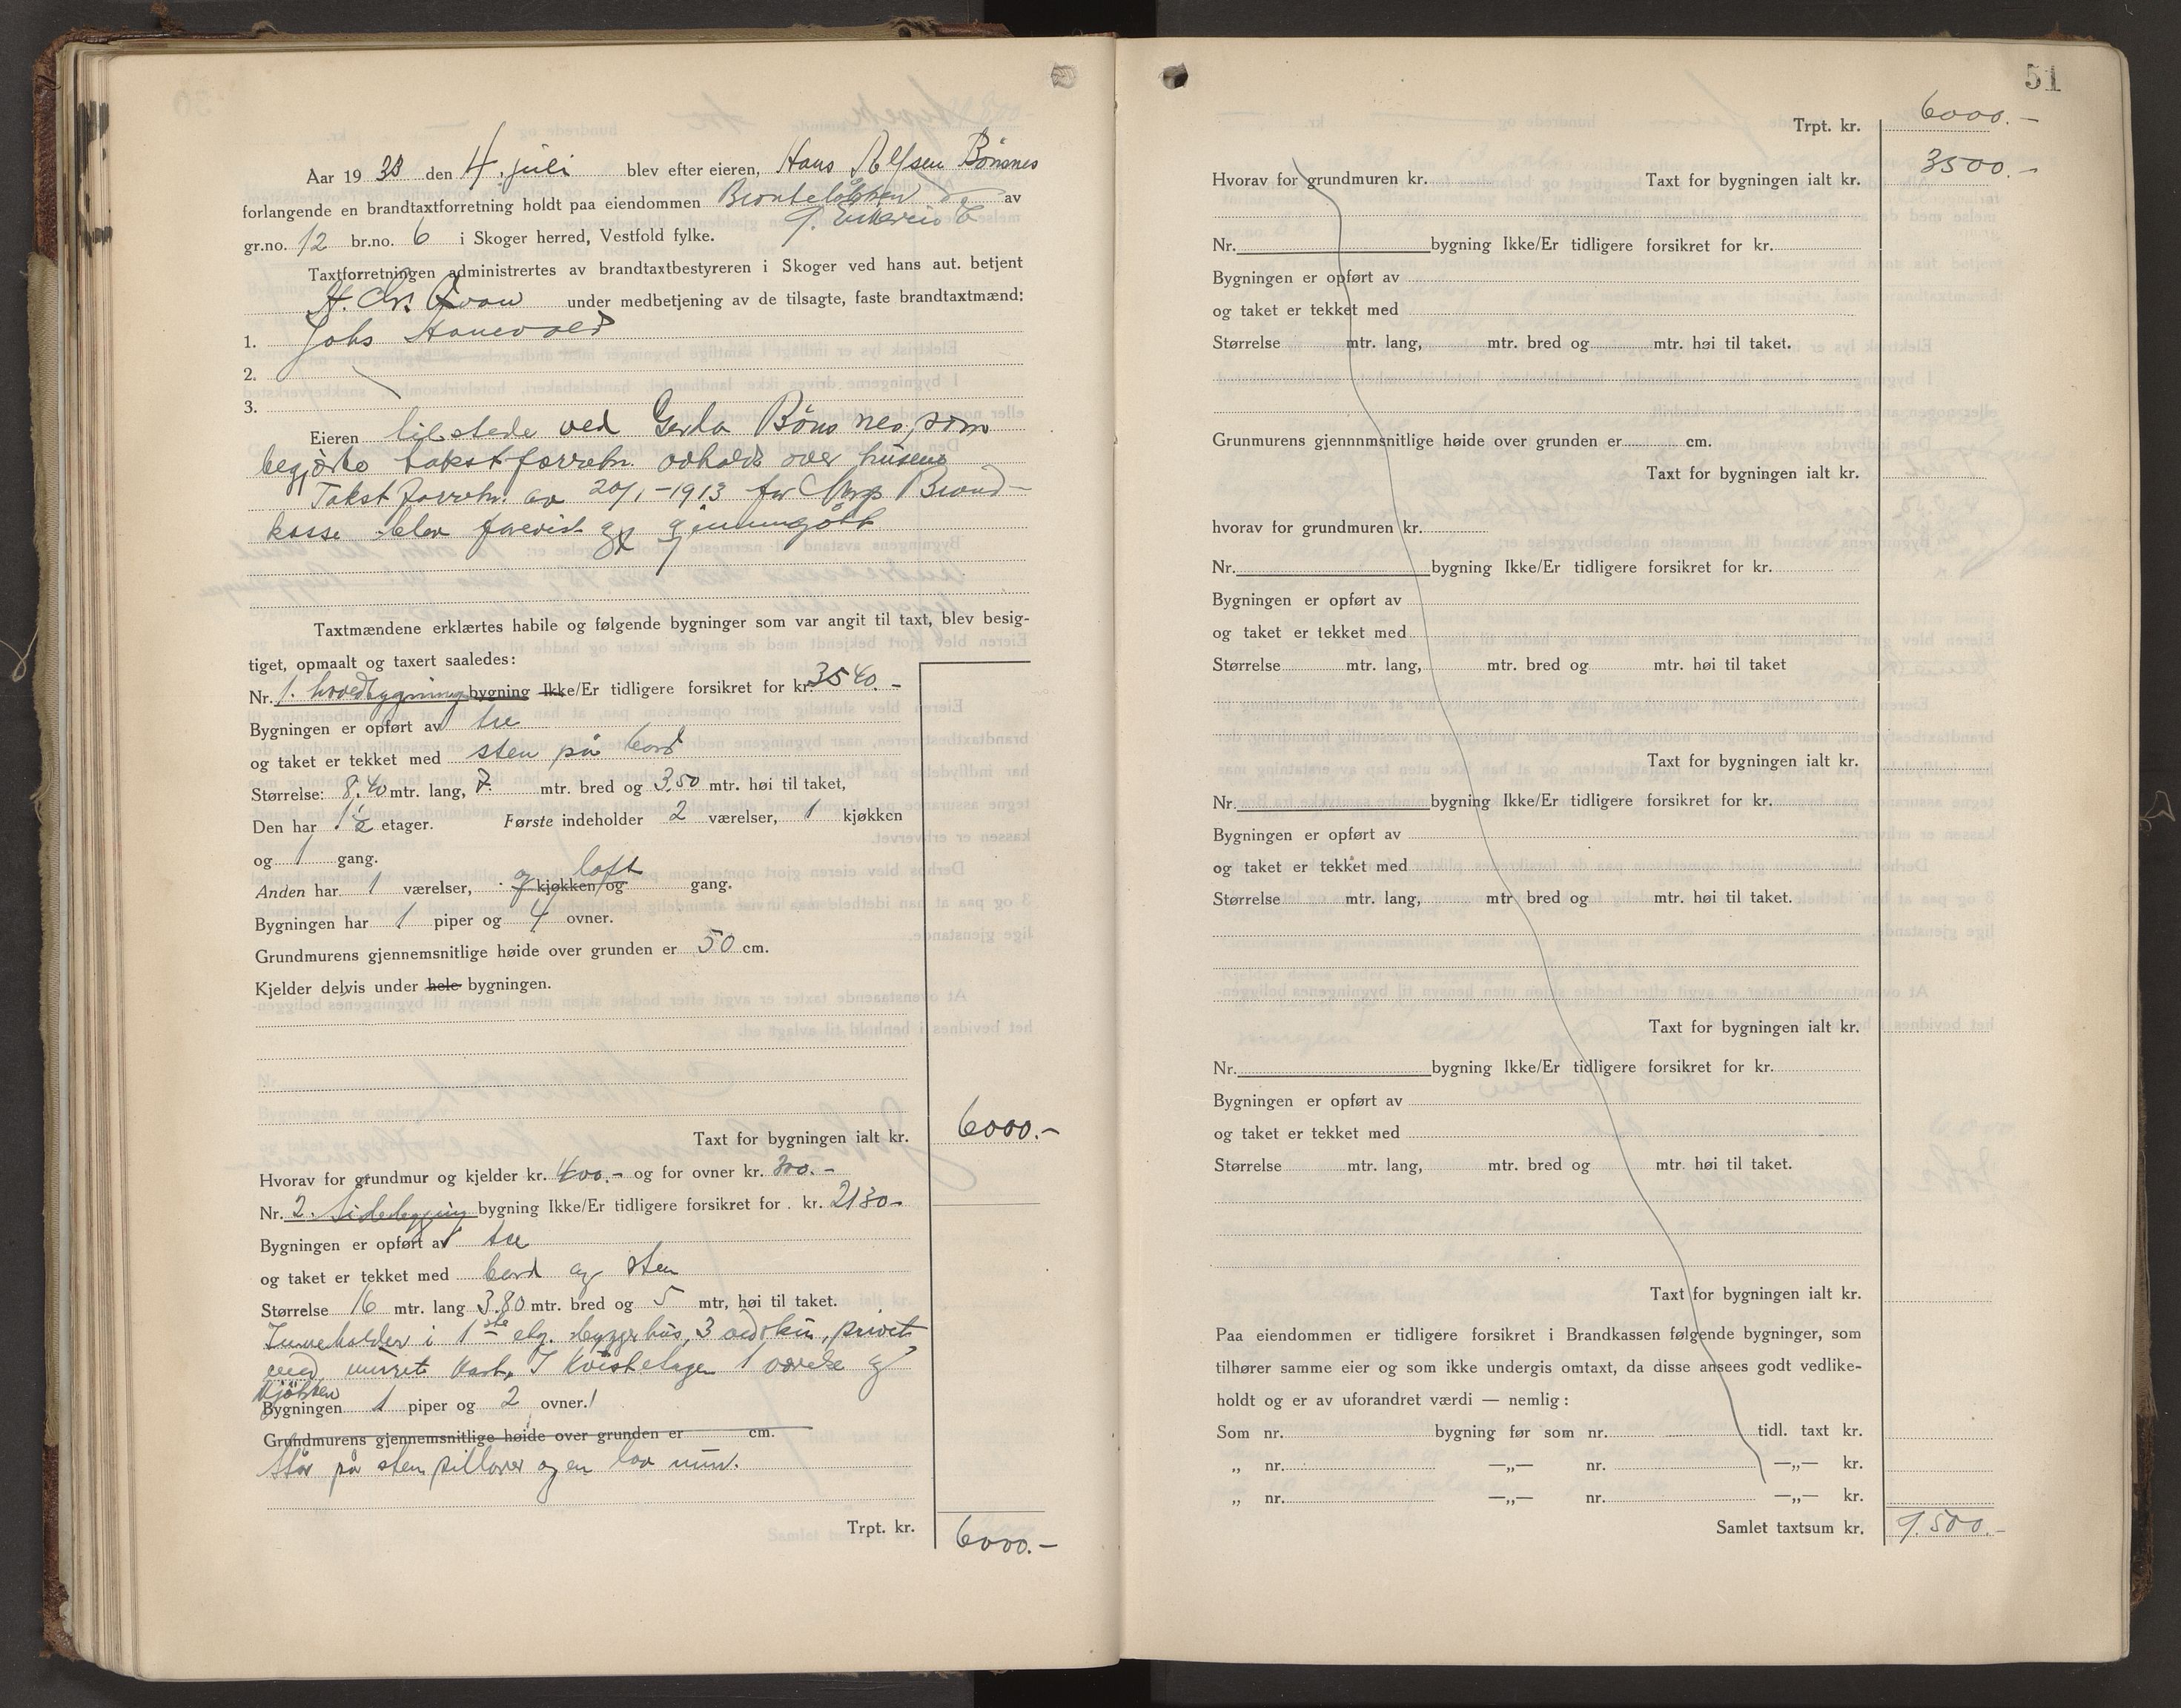 Aar 1933 den 4. juli blev efter eieren, Hans Alfsen Bönsnes
forlangende en brandtaxtforretning holdt paa eiendommen av
gr.no. 12 br.no. 6 i Skoger herred, Vestfold fylke.
Taxtforretningen administrertes av brandtaxtbestyreren i Skoger ved hans aut. betjent
H. Chr. under medbetjening av de tilsagte, faste brandtaxtmænd:
1. Johs Hanevold
2.
3.
Eieren tilstede ved Gerda Bönsnes, som
begjærte takstforretn. avholdt over husene
Takstforretn. av 20/1-1913 for Norges Brand-
kasse blev forevist og gjennemgått
Taxtmændene erklærtes habile og følgende bygninger som var angit til taxt, blev besig-
tiget, opmaalt og taxert saaledes:
Nr. 1. hovedbygning bygning Ikke/Er tidligere forsikret for kr. 3540.-
Bygningen er opført av tre
og taket er tekket med sten på bord
Størrelse: 8.40 mtr. lang, 7. mtr. bred og 3.50 mtr. høi til taket,
Den har 1½ etager. Første indeholder 2 værelser, 1 kjøkken
og 1 gang.
og loft
Anden har 1 værelser, kjøkken og gang.
Bygningen har 1 piper og 4 ovner.
Grundmurens gjennemsnitlige høide over grunden er 50 cm.
Kjelder delvis under hele bygningen.
Taxt for bygningen ialt kr. 6000.-
Hvorav for grundmur og kjelder kr. 400.- og for ovner kr. 300.-
Nr. 2. Sidebygning bygning Ikke/Er tidligere forsikret for kr. 2130-
Bygningen er opført av tre
og taket er tekket med bord og sten
Størrelse 16 mtr. lang 3.80 mtr. bred og 5 mtr, høi til taket.
Inneholder i 1ste etg. bryggerhus, 3 vedskur, privet
med muret kast. I kvistetagen 1 værelse og
kjökken
Bygningen 1 piper og 2 ovner.
Grundmurens gjennemsnitlige høide over grunden er cm.
Står på sten pillarer og en lav mur.
Trpt. kr. 6000.-
51
Trpt. kr. 6000.-
Hvorav for grundmuren kr. Taxt for bygningen ialt kr. 3500.-
Nr. bygning Ikke/Er tidligere forsikret for kr.
Bygningen er opført av
og taket er tekket med
Størrelse mtr. lang, mtr. bred og mtr. høi til taket.
Grunmurens gjennnmsnitlige høide over grunden er cm.
Taxt for bygningen ialt kr.
hvorav for grundmuren kr.
Nr. bygning Ikke/Er tidligere forsikret for kr.
Bygningen er opført av
og taket er tekket med
Størrelse mtr. lang, mtr. bred og mtr. høi til taket
Taxt for bygningen ialt kr.
Nr. bygning Ikke/Er tidligere forsikret for kr.
Bygningen er opført av
og taket er tekket med
Størrelse mtr. lang, mtr bred og mtr. høi til taket.
Taxt for bygningen ialt kr.
Nr. bygning Ikke/Er tidligere forsikret for kr.
Bygningen er opført av
og taket er tekket med
Størrelse mtr. lang, mtr. bred og mtr. høi til taket.
Taxt for bygningen ialt kr.
Paa eiendommen er tidligere forsikret i Brandkassen følgende bygninger, som
tilhører samme eier og som ikke undergis omtaxt, da disse ansees godt vedlike-
holdt og er av uforandret værdi — nemlig:
Som nr. bygning før som nr. tidl. taxt kr.
„ nr. —„— nr. —„— kr.
„ nr. —„— nr. —„— kr.
Samlet taxtsum kr. 9.500.-